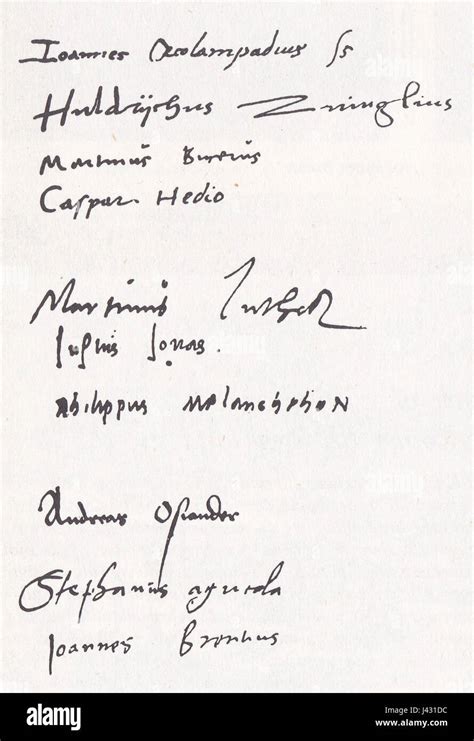 Ioannes Œcolampadius ſs
Huldrychus Zuinglius
Martinus Bucerus
Caspar Hedio
Martinus Luther
Iustus Jonas.
Philippus Melanchthon
Andreas Osiander
Stephanus agricola
Ioannes Brentius
alamy stock photo
J431DC
www.alamy.com